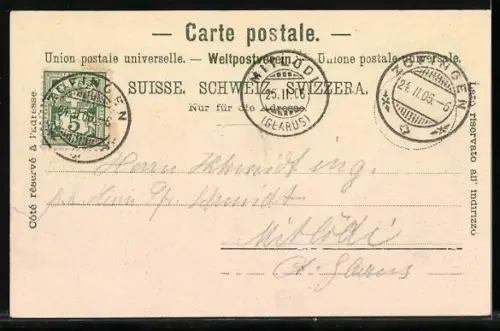 — Carte postale. —
Union postale universelle. — Weltpostverein. — Unione postale universale.
SUISSE. SCHWEIZ. SVIZZERA.
Nur für die Adresse.
Côté réservé à l'adresse.
Lato riservato all' indirizzo
ZOFINGEN
5
MITLÖDI
25.II.06
(GLARUS)
ZOFINGEN
24.II.06.-6
Herrn Schmidt ing.
Herrn Schmidt
Mitlödi
Ct. Glarus